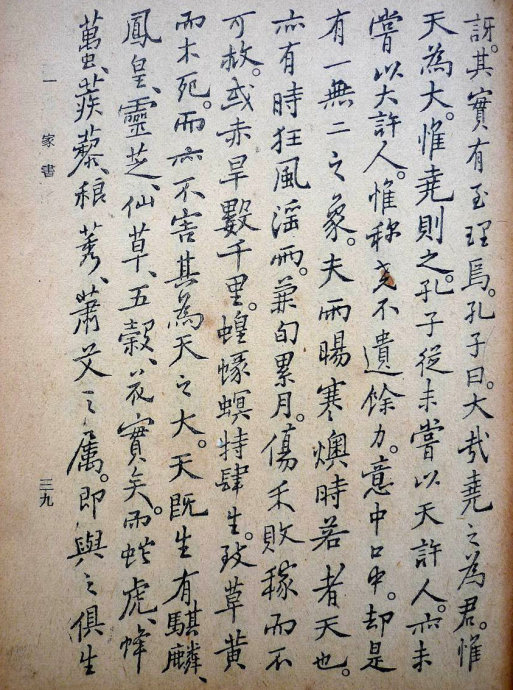 訝。其實有至理焉。孔子曰。大哉堯之為君。惟
天為大。惟堯則之。孔子從未嘗以天許人。亦未
嘗以大許人。惟称堯不遺餘力。意中口中。却是
有一無二之象。夫雨暘寒燠時若者天也。
亦有時狂風淫雨。兼旬累月。傷禾敗稼而不
可救。或赤旱數千里。蝗螟特肆生。致草黃
而木死。而亦不害其為天之大。天既生有騏麟、
鳳皇、靈芝、仙草、五穀、花實矣。而蛇虎、蜂
蠆、蒺藜、稂莠、蕭艾之属。即與之俱生
一 家書 三九